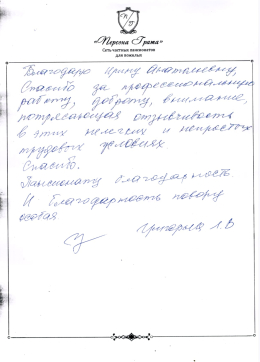 П Г
«Персона Грата»
Сеть частных пансионатов
для пожилых
Благодарю Ирину Анатольевну,
Спасибо за профессиональную
работу, доброту, внимание,
потрясающая отзывчивость
в этих нелегких и непростых
трудовых условиях
Спасибо.
Пансионату благодарность
И благодарность повару
особая
Л.В